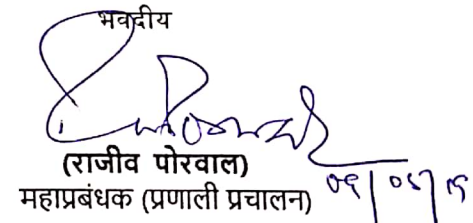 भवदीय
(राजीव पोरवाल)
महाप्रबंधक (प्रणाली प्रचालन)